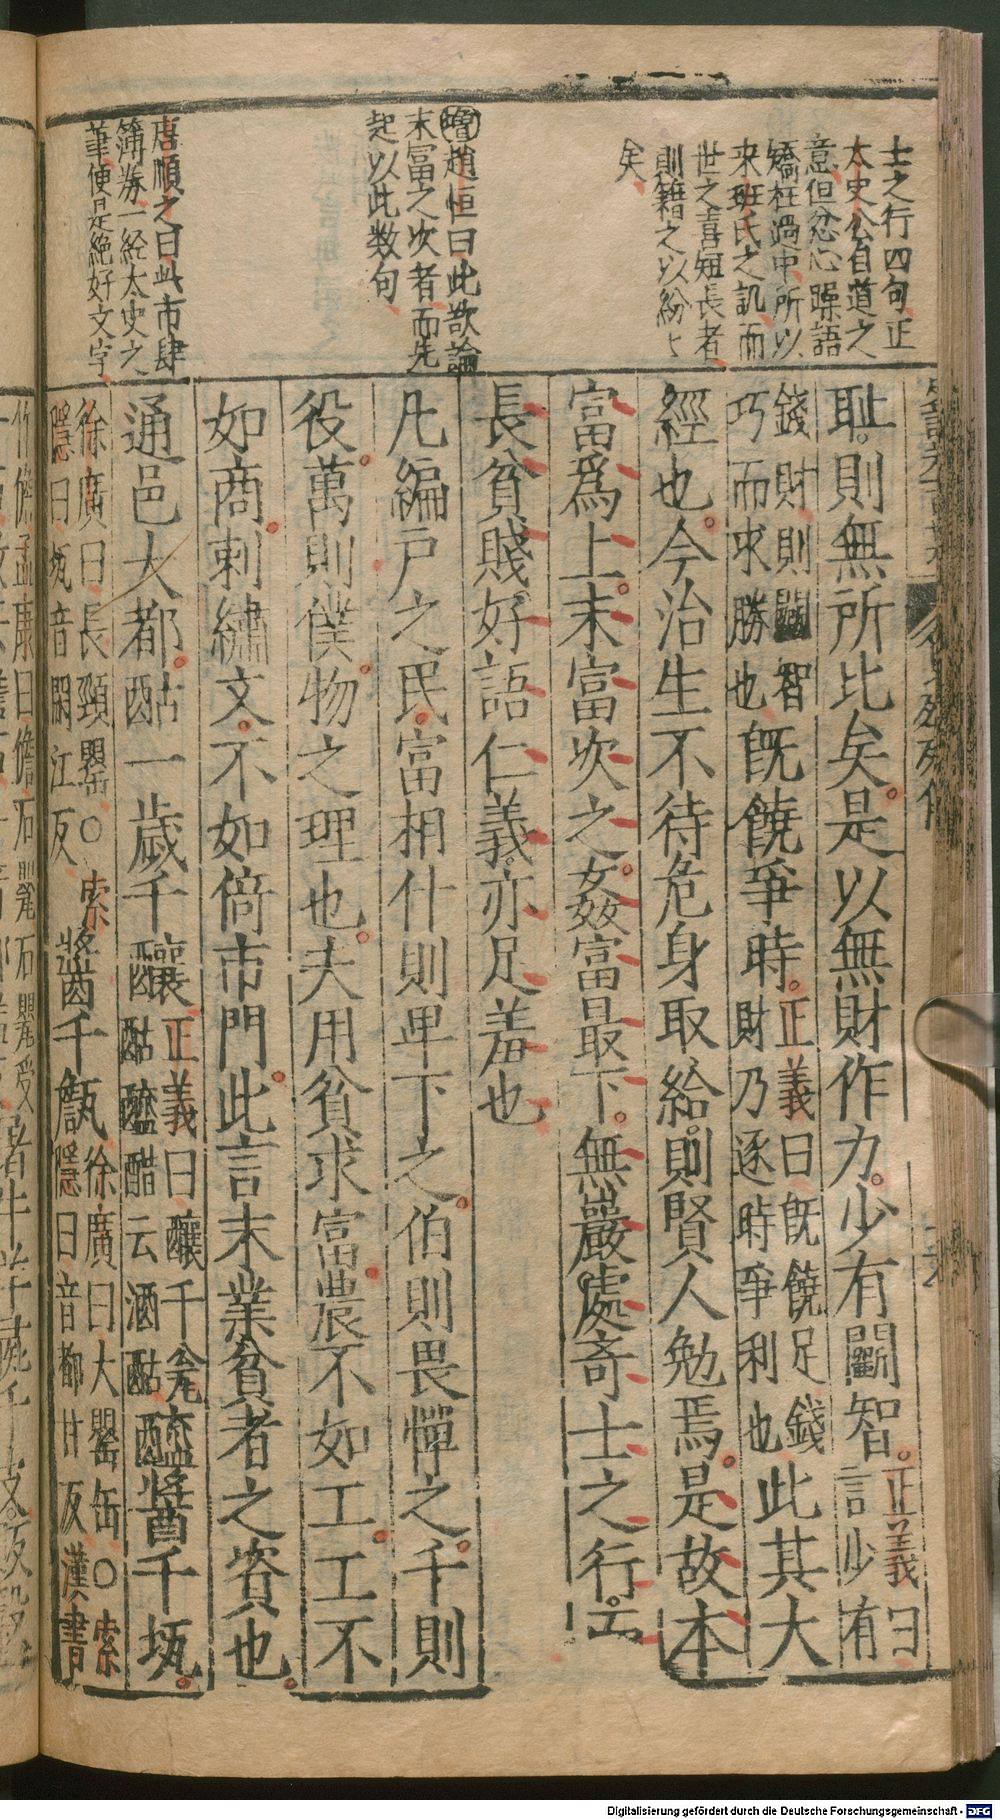 士之行四句正
太史公自道之
意但忿心躁語
矯枉過中所以
来班氏之訊而
世之喜短長者
則籍之以紛々
矣
增趙恒曰此欲論
末富之次者而先
起以此数句
唐順之曰此市肆
簿券一經太史之
筆便是絶好文字
耻則無所比矣是以無財作力少有鬭智正義曰言少有
錢財則鬭智巧而求勝也既饒爭時正義曰既饒足錢財乃逐時爭利也此其大
經也今治生不待危身取給則賢人勉焉是故本
富爲上末富次之姦富最下無巖處奇士之行而
長貧賤好語仁義亦足羞也
凡編戸之民富相什則卑下之伯則畏憚之千則
役萬則僕物之理也夫用貧求富農不如工工不
如商刺繡文不如倚市門此言末業貧者之資也
通邑大都酤一歲千釀正義曰釀千瓮酤醯醋云酒酤醯醬千瓨
徐廣曰長頸罌○索隱曰瓨音閑江反醬千甔徐廣曰大罌缶○索隱曰音都甘反漢書
Digitalisierung gefördert durch die Deutsche Forschungsgemeinschaft - DFG